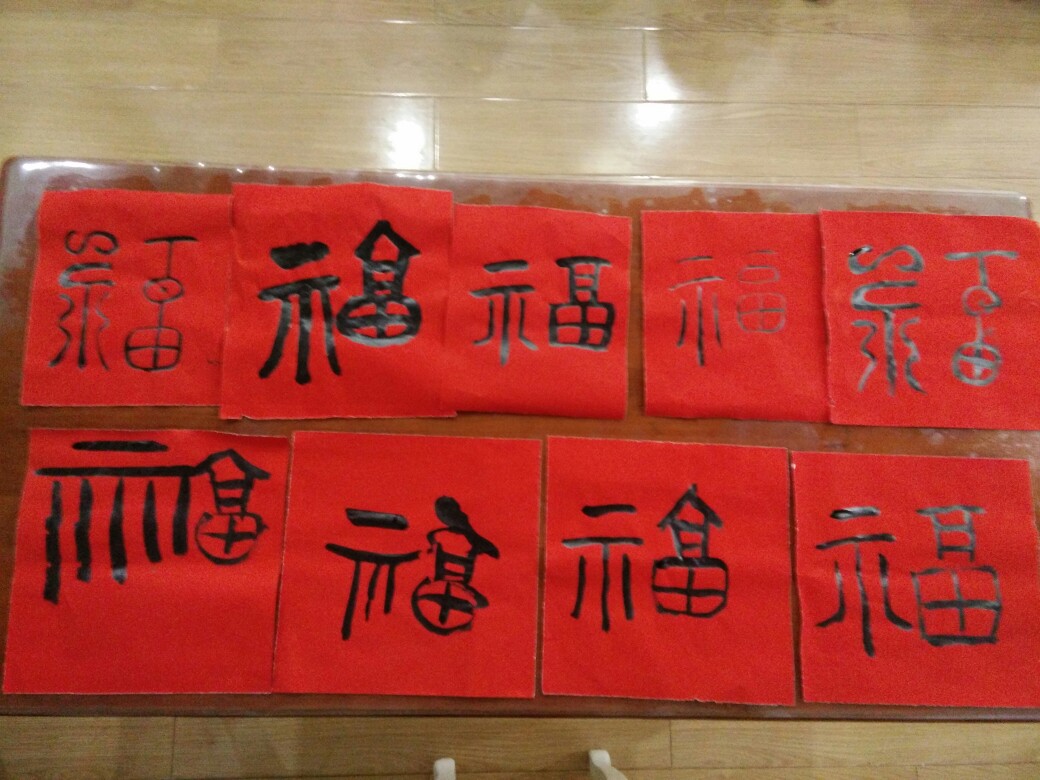 福 福 福 福 福
福 福 福 福